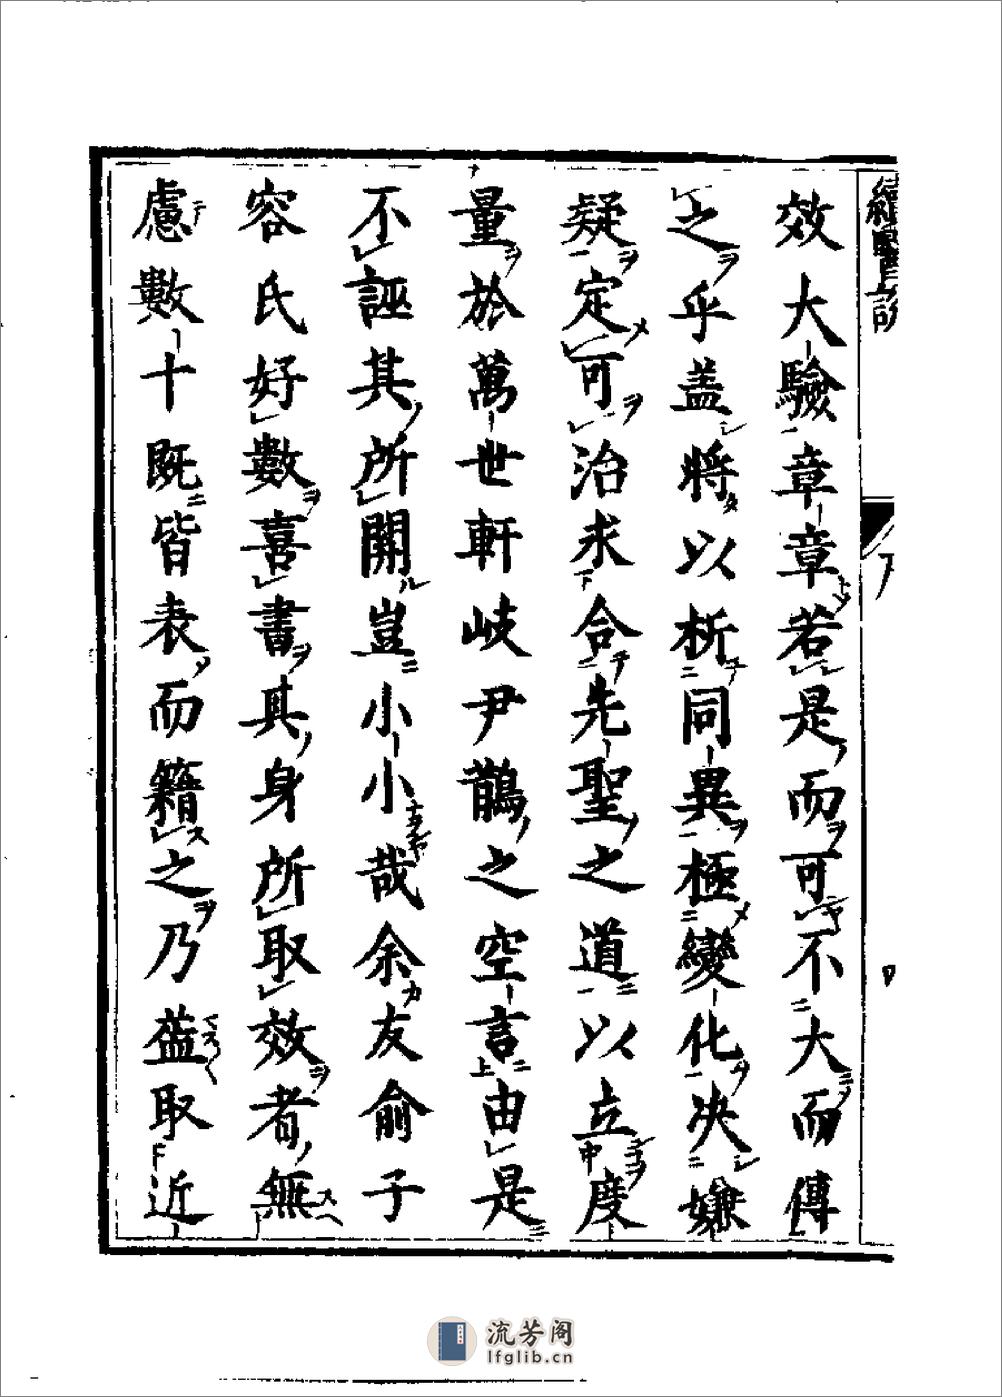 效大驗章章若是而可不大而傳
之乎盖將以析同異極變化决嫌
疑定可治求合先聖之道以立度
量於萬世軒岐尹鵲之空言由是
不誣其所開豈小小哉余友俞子
容氏好數喜書其身所取效者無
慮數十既皆表而籍之乃益取近
流芳阁
lfglib.cn